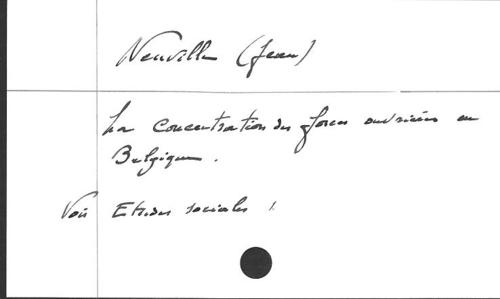 Neuville (Jean)
La concentration des forces ouvrières en
Belgique.
Voir Etudes sociales 1